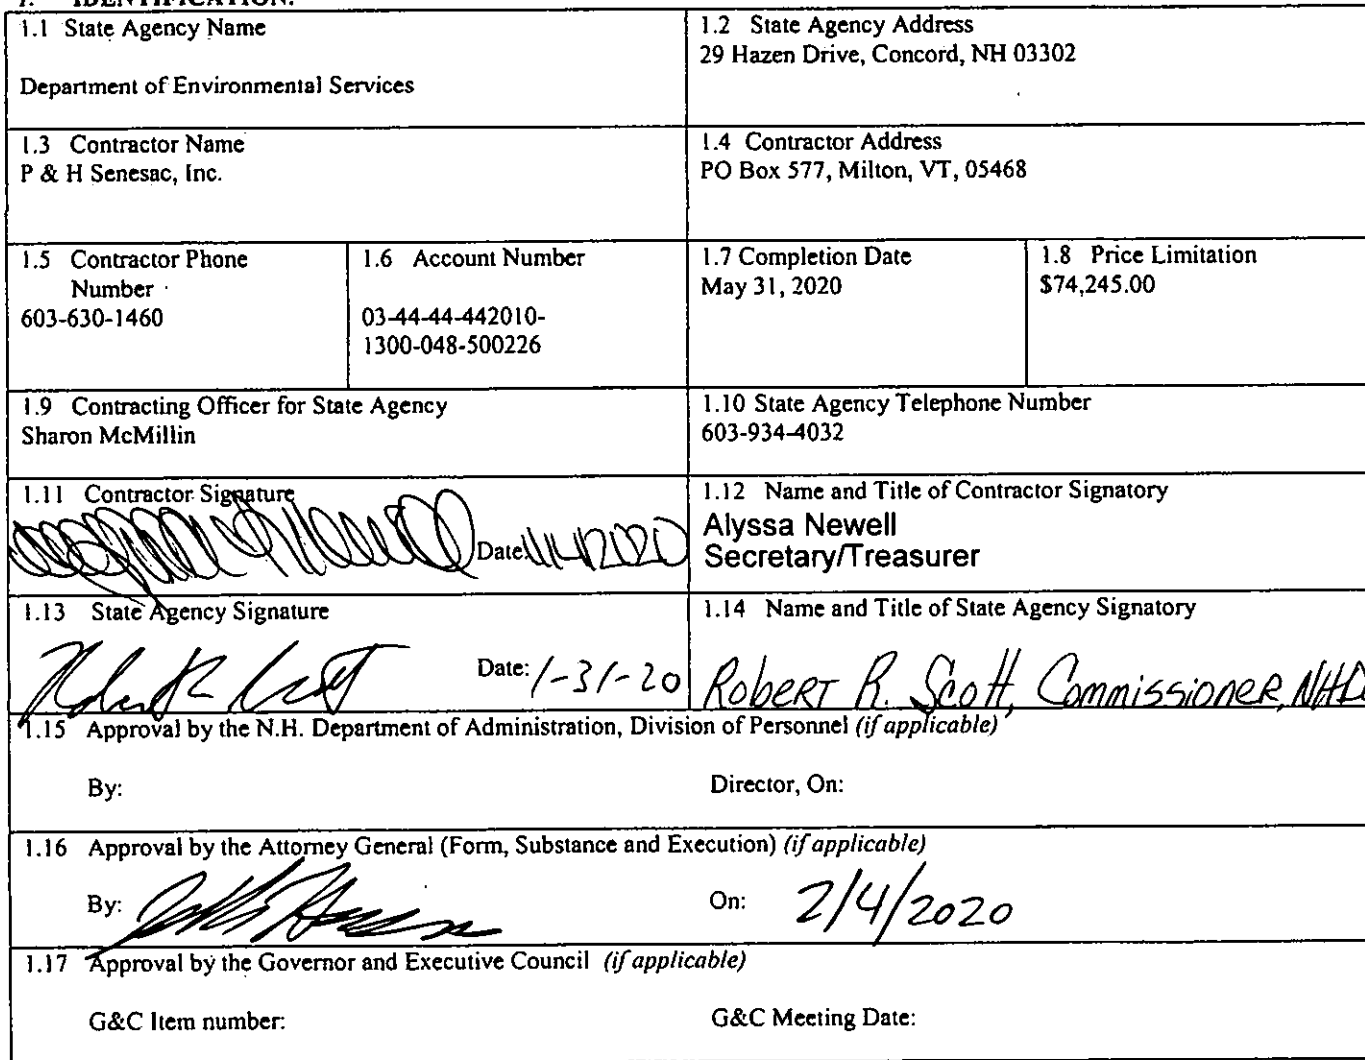 1. IDENTIFICATION.
1.1 State Agency Name
Department of Environmental Services
1.2 State Agency Address
29 Hazen Drive, Concord, NH 03302
1.3 Contractor Name
P & H Senesac, Inc.
1.4 Contractor Address
PO Box 577, Milton, VT, 05468
1.5 Contractor Phone
Number
603-630-1460
1.6 Account Number
03-44-44-442010-
1300-048-500226
1.7 Completion Date
May 31, 2020
1.8 Price Limitation
$74,245.00
1.9 Contracting Officer for State Agency
Sharon McMillin
1.10 State Agency Telephone Number
603-934-4032
1.11 Contractor Signature
Date:
1.12 Name and Title of Contractor Signatory
Alyssa Newell
Secretary/Treasurer
1.13 State Agency Signature
Date: 1-31-20
1.14 Name and Title of State Agency Signatory
Robert R. Scott, Commissioner,
1.15 Approval by the N.H. Department of Administration, Division of Personnel (if applicable)
By:
Director, On:
1.16 Approval by the Attorney General (Form, Substance and Execution) (if applicable)
By:
On: 2/4/2020
1.17 Approval by the Governor and Executive Council (if applicable)
G&C Item number:
G&C Meeting Date: